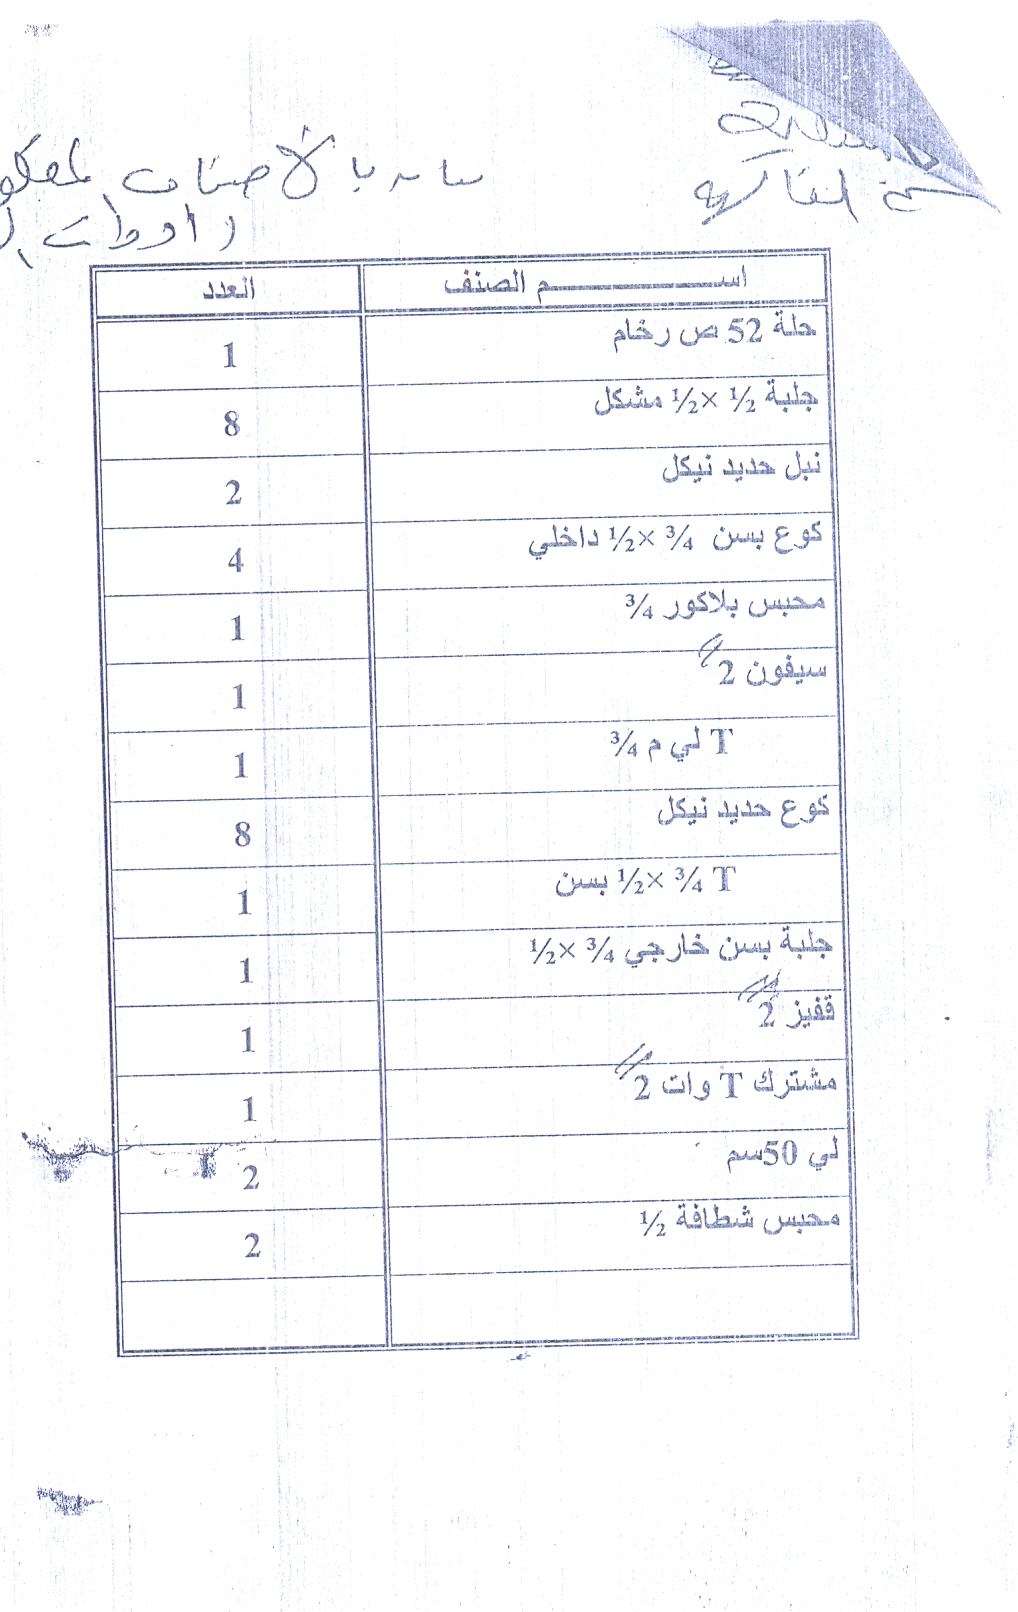 بيان بالأصناف
اســـــــــم الصنف العدد
حلة 52 ص رخام 1
جلبة ½ ×½ مشكل 8
نبل حديد نيكل 2
كوع بسن ¾ ×½ داخلي 4
محبس بلاكور ¾ 1
سيفون 2 // 1
T لي م ¾ 1
كوع حديد نيكل 8
T ¾ ×½ بسن 1
جلبة بسن خارجي ¾ ×½ 1
قفيز 2 // 1
مشترك T وات 2 // 1
لي 50سم 2
محبس شطافة ½ 2